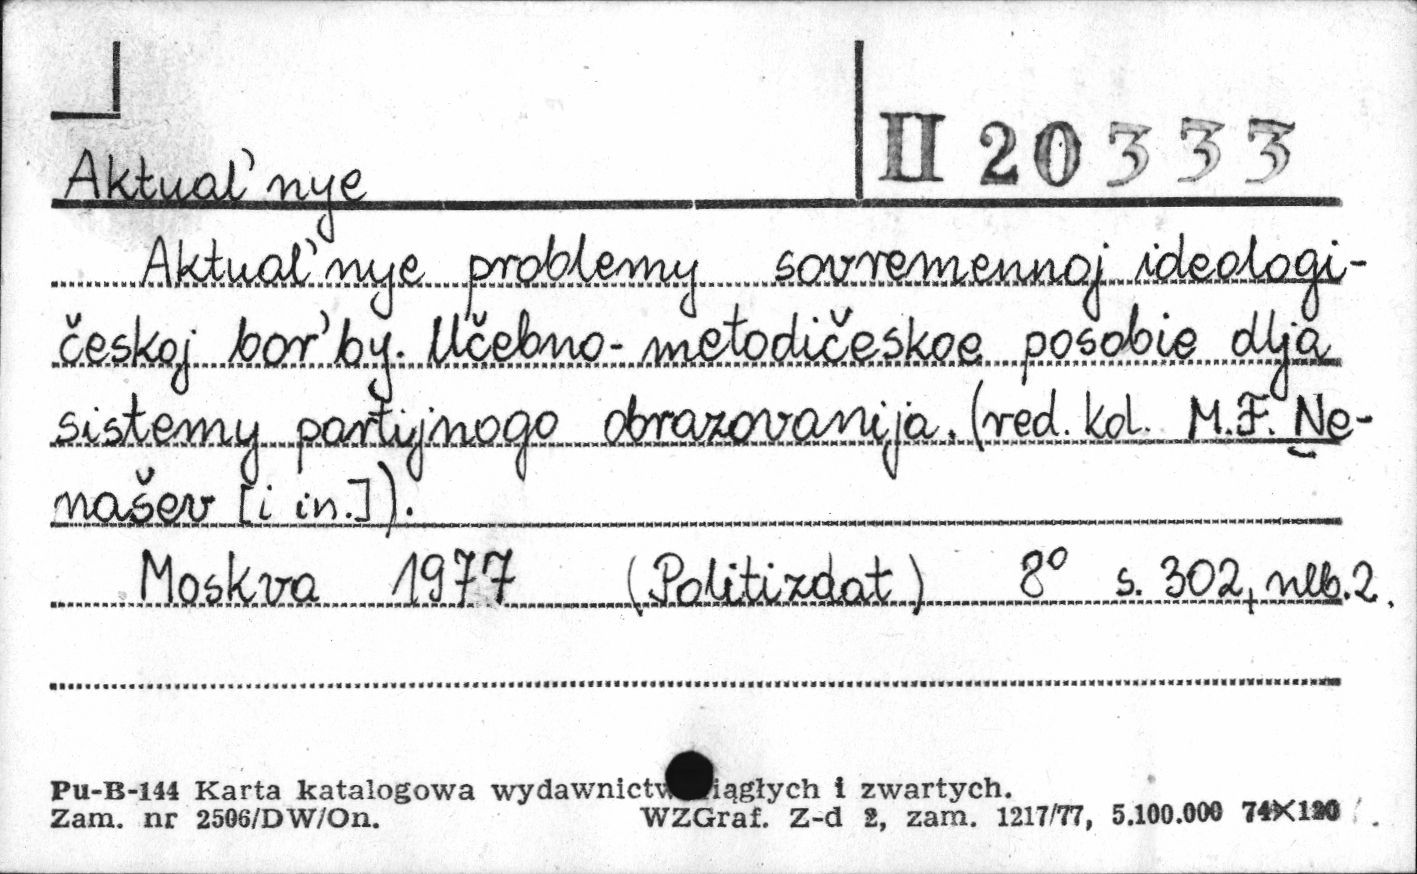 II 20333
Aktual'nye
Aktual'nye problemy sovremennoj ideologi-
českoj bor'by. Učebno-metodičeskoe posobie dlja
sistemy partijnogo obrazovanija. (red. kol. M.F. Ne-
našev [i in.]).
Moskva 1977 (Politizdat) 8° s. 302, nlb. 2.
Pu-B-144 Karta katalogowa wydawnictw iągłych i zwartych.
Zam. nr 2506/DW/On. WZGraf. Z-d 2, zam. 1217/77, 5.100.000 74×120